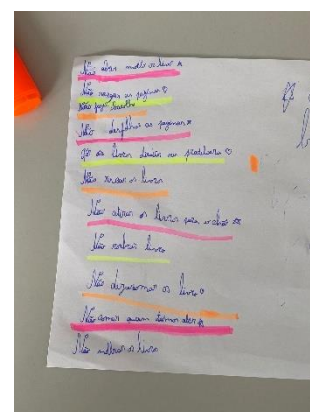 Não abrir muito o livro
Não rasgar as páginas ♡
Não fazer barulho
Não desfolhar as páginas
os livros na prateleira ♡
Não riscar os livros
Não atirar os livros para o chão
Não roubar livros
Não desarrumar os livros
Não comer quando
Não molhar os livros